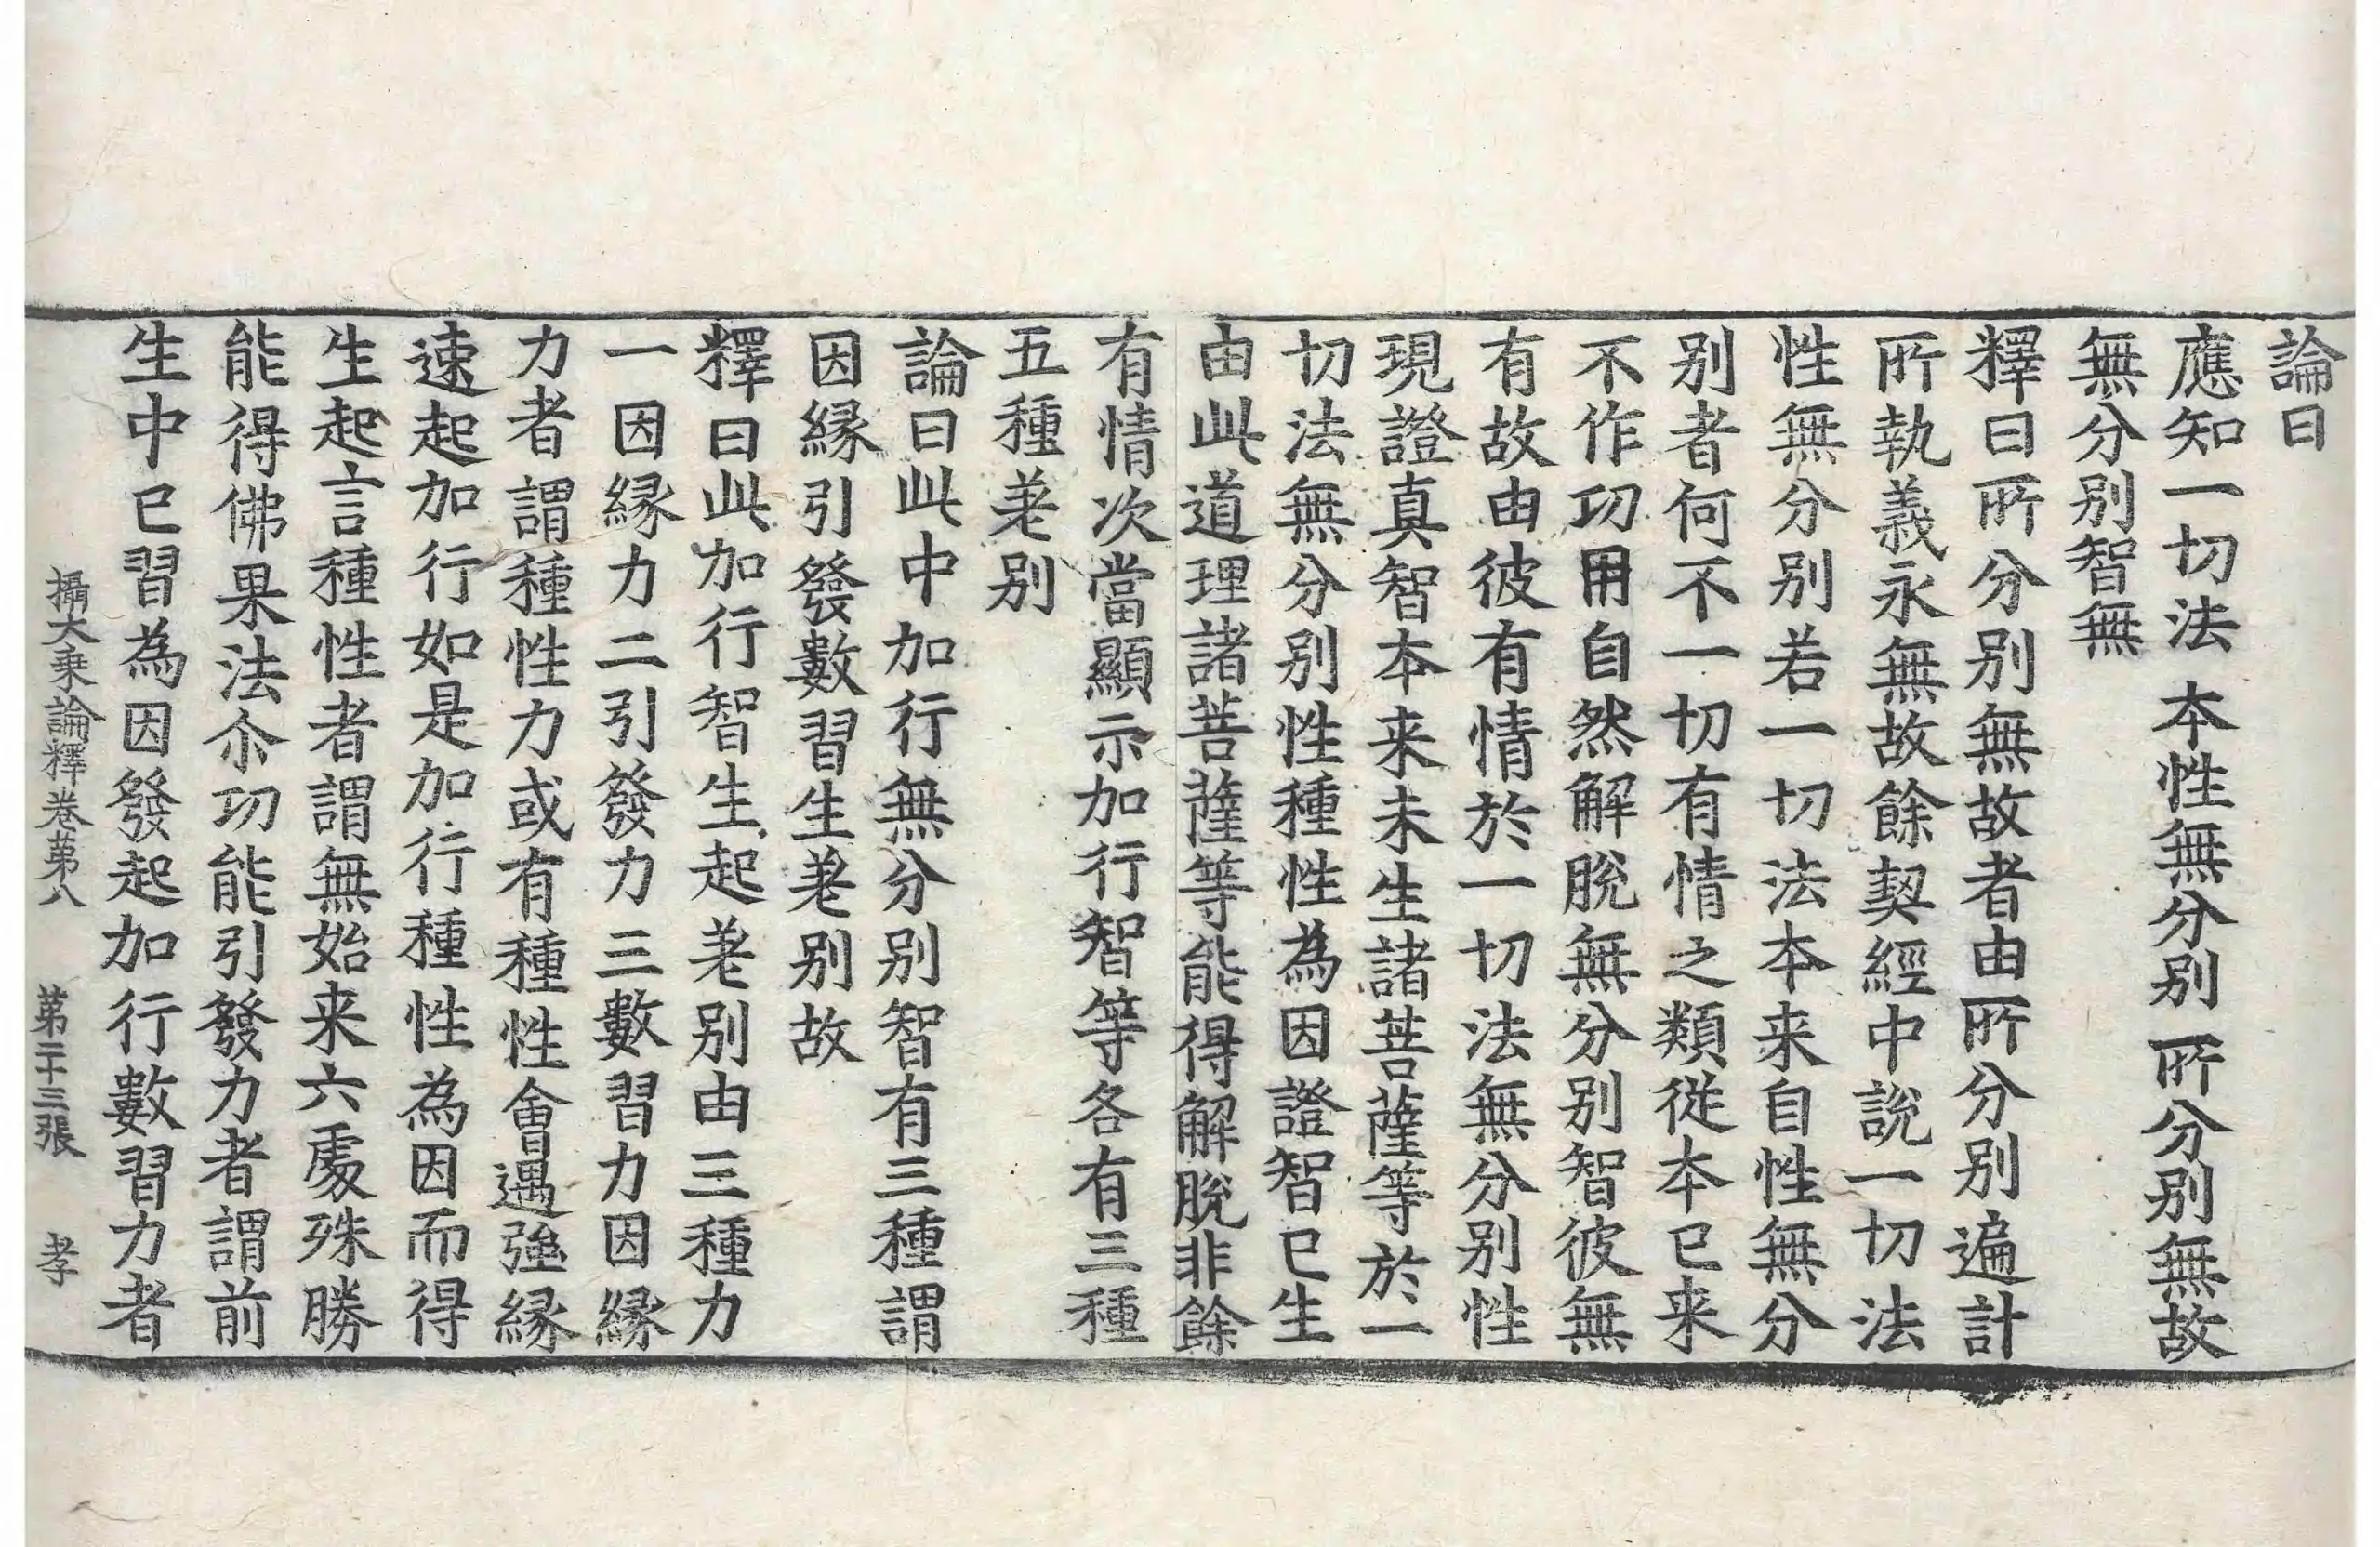 論曰
應知一切法　本性無分别　所分别無故
無分别智無
釋曰所分别無故者由所分别遍計
所執義永無故餘契經中說一切法
性無分别若一切法本来自性無分
别者何不一切有情之類從本已来
不作功用自然解脫無分别智彼無
有故由彼有情於一切法無分别性
現證真智本来未生諸菩薩等於一
切法無分别性種性為因證智已生
由此道理諸菩薩等能得解脫非餘
有情次當顯示加行智等各有三種
五種差别
論曰此中加行無分别智有三種謂
因縁引發數習生差别故
釋曰此加行智生起差别由三種力
一因縁力二引發力三數習力因縁
力者謂種性力或有種性會遇強縁
速起加行如是加行種性為因而得
生起言種性者謂無始来六處殊勝
能得佛果法尒功能引發力者謂前
生中已習為因發起加行數習力者
攝大乗論釋卷第八　第二十三張　孝